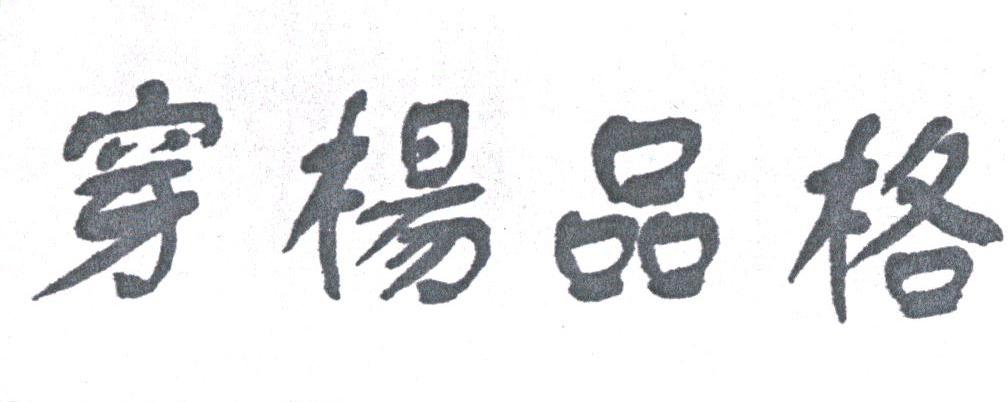 穿楊品格